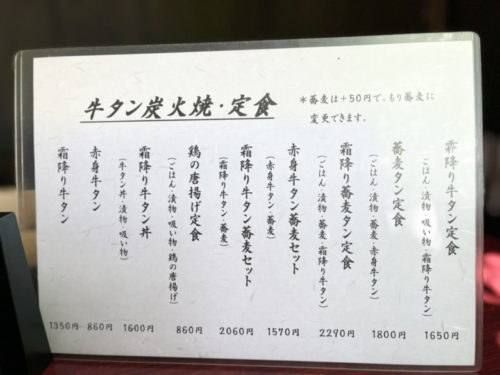 牛タン炭火焼・定食
＊蕎麦は+50円で、もり蕎麦に
変更できます。
霜降り牛タン定食
(ごはん・漬物・吸い物・霜降り牛タン)
1650円
蕎麦タン定食
(ごはん・漬物・蕎麦・赤身牛タン)
1800円
霜降り蕎麦タン定食
(ごはん・漬物・蕎麦・霜降り牛タン)
2290円
赤身牛タン蕎麦セット
(赤身牛タン・蕎麦)
1570円
霜降り牛タン蕎麦セット
(霜降り牛タン・蕎麦)
2060円
鶏の唐揚げ定食
(ごはん・漬物・吸い物・鶏の唐揚げ)
860円
霜降り牛タン丼
(牛タン丼・漬物・吸い物)
1600円
赤身牛タン
860円
霜降り牛タン
1350円